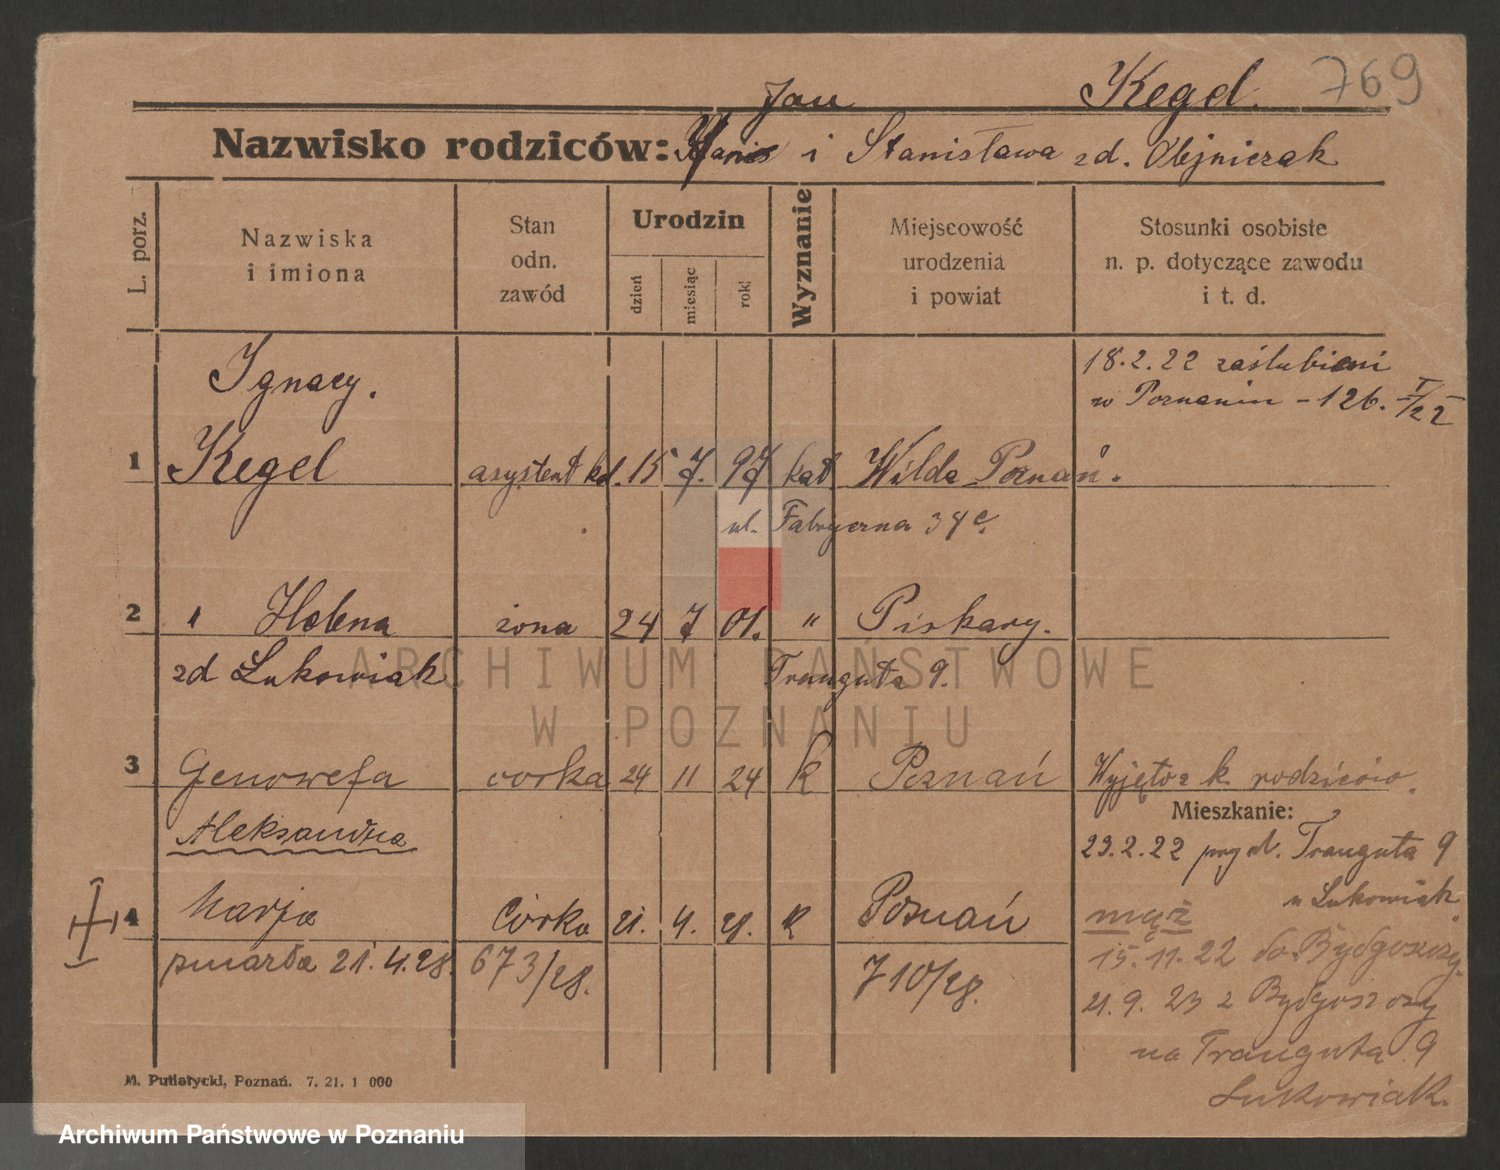 Kegel. 769
Jan
Nazwisko rodziców: i Stanisława zd. Olejniczak
L. porz.
Nazwiska i imiona
Stan odn. zawód
Urodzin
dzień
miesiąc
rok
Wyznanie
Miejscowość urodzenia i powiat
Stosunki osobiste n. p. dotyczące zawodu i t. d.
Ignacy.
18.2.22 zaślubieni
w Poznaniu - 126. I/22
1 Kegel asystent kol. 15 7. 97 kat. Wilda Poznań.
ul. Fabryczna 34c.
2 " Helena żona 24 7 01. " Piskary.
zd Lukowiak Traugutta 9.
ARCHIWUM PAŃSTWOWE
W POZNANIU
3 Genowefa córka 24 11 24 k Poznań Wyjęto z k. rodziców.
Mieszkanie:
Aleksandra
23.2.22 Trauguta 9
u Lukowiak.
4 Marja Córka 21. 4. 28. k Poznań
mąż
zmarła 21.4.28. 673/28. 710/28.
15.11.22 do Bydgoszczy.
21.9.23 z Bydgoszczy
na Trauguta 9
Lukowiak.
M. Putiatycki, Poznań. 7. 21. 1 000
Archiwum Państwowe w Poznaniu